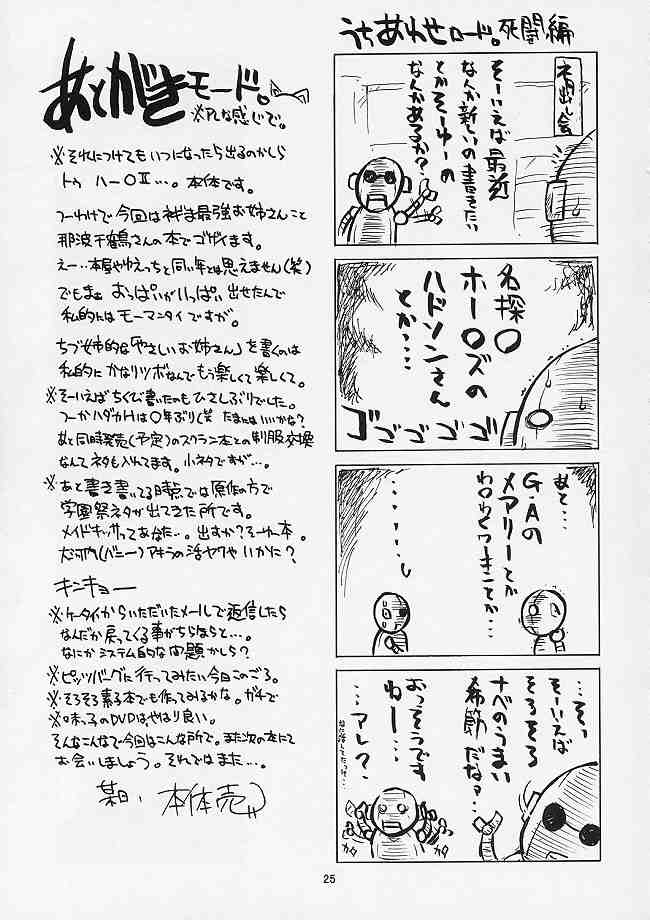 うちあわせロード。死闘編
ネタ出し会
そーいえば最近
なんか新しいの書きたい
とかそーゆーの
なんかあるか?
名探〇
ホー〇ズの
ハドソンさん
とか…
ゴゴゴゴゴゴ
あと…
G・Aの
メアリーとか
わ〇わくワーキことか…
…そ、そい
そーいえば
そろそろ
ナベのうまい
季節だなァ…
おっそうです
ねー…
…アレ?
カタ
カタ
あとがきモード。
※アレな感じで。
※それにつけてもいつになったら出るのかしら
トゥ ハー〇Ⅱ…。本体です。
つーわけで今回はネギま最強お姉さんこと
那波千鶴さんの本でゴザイます。
えー…本屋やゆえっちと同い年とは思えません(笑)
でもまぁ おっぱいがいっぱい出せたんで
私的にはモーマンタイですが。
ちづ姉的な「やさしいお姉さん」を書くのは
私的にかなりツボなんでもう楽しくて楽しくて。
※そーいえばちくび書いたのもひさしぶりでした。
つーかハダカHは〇年ぶり(笑 たまにはいいかな?
あと同時発売(予定)のスクラン本との制服交換
なんてネタも入れてます。小ネタですが…。
※あと書き書いてる時点では原作の方で
学園祭ネタが出てきた所です。
メイドキッサってあなた…。出すか?そーゆー本。
大河内(バニー)アキラの活ヤクやいかに?
キンキョー
※ケータイからいただいたメールで返信したら
なんだか戻ってくる事がちらほらと…。
なにかシステム的な問題かしら?
※ピッツバーグに行ってみたい今日このごろ。
※そろそろ素子本でも作ってみるかな。ガチで
※味っ子のDVDはやはり良い。
そんなこんなで今回はこんな所で。また次の本にて
お会いしましょう。それではまた…。
某日、本体売
25